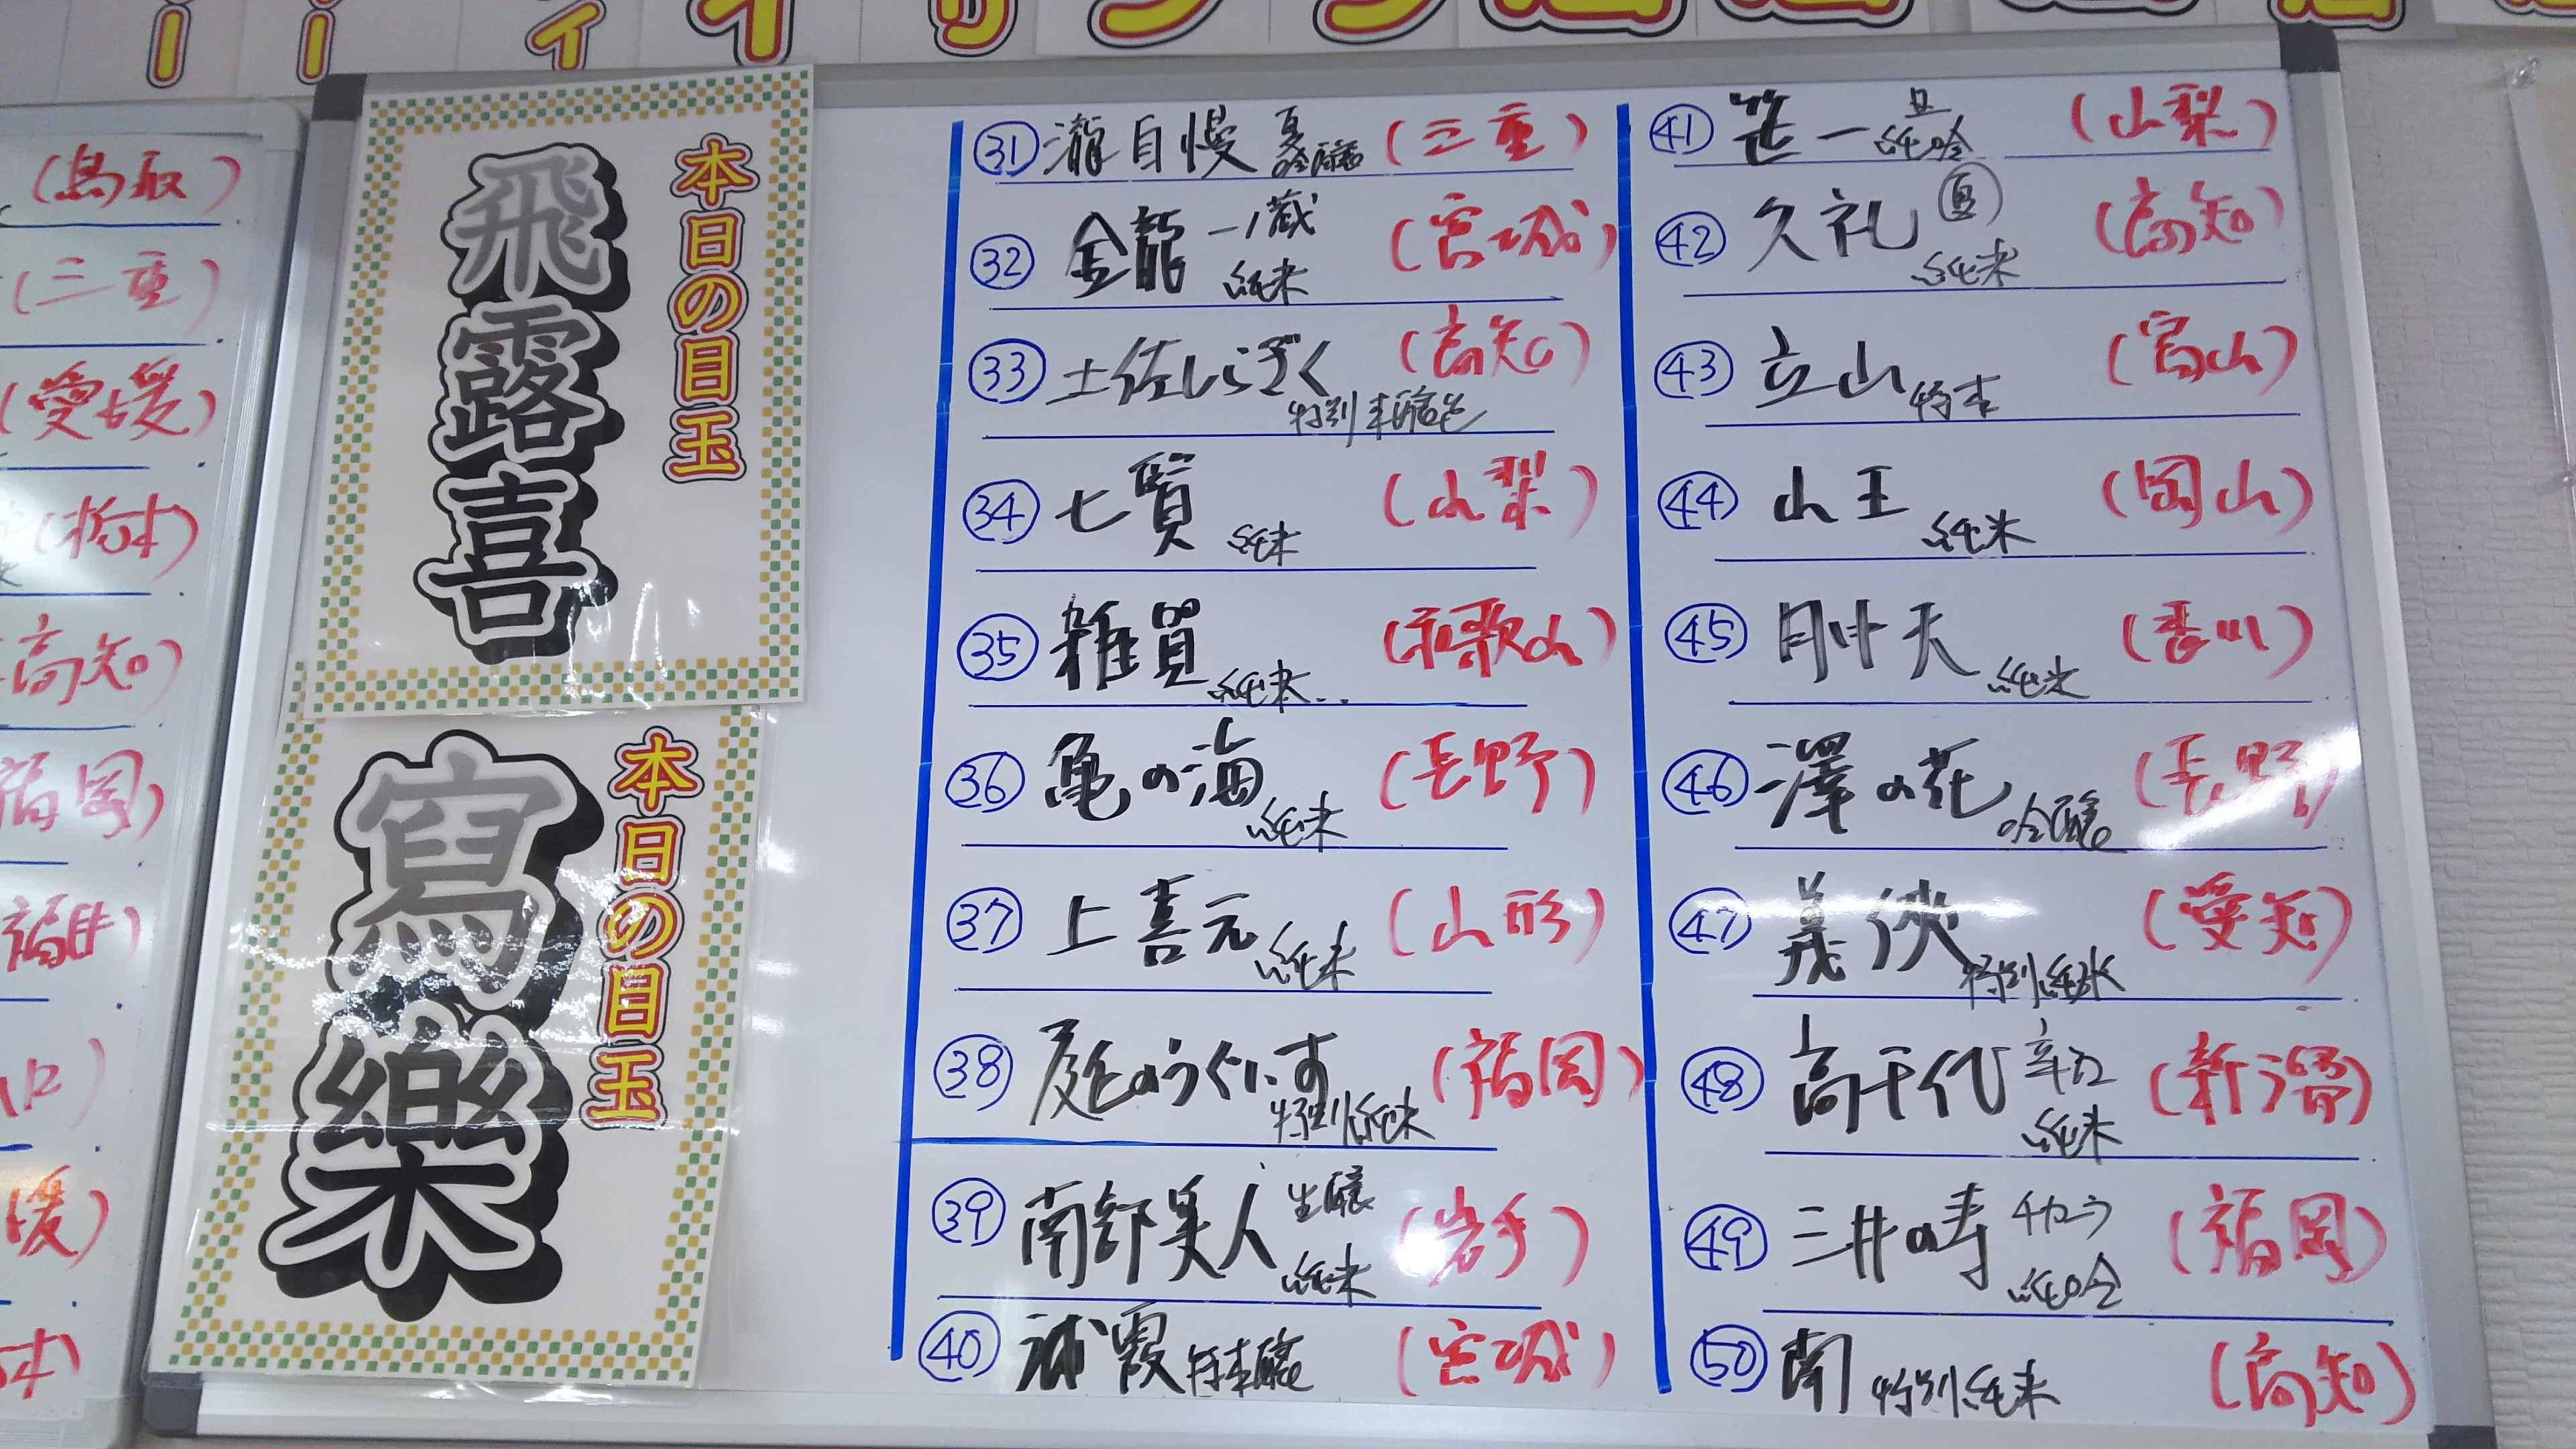 (鳥取)
(三重)
(愛媛)
(栃木)
高知)
福岡)
福井)
口)
媛)
本日の目玉
飛露喜
本日の目玉
寫樂
㉛ 瀧自慢 夏吟醸 (三重)
㉜ 金龍 一ノ蔵 純米 (宮城)
㉝ 土佐しらぎく 特別本醸造 (高知)
㉞ 七賢 純米 (山梨)
㉟ 雑賀 純米 (和歌山)
㊱ 亀の海 純米 (長野)
㊲ 上喜元 純米 (山形)
㊳ 庭のうぐいす 特別純米 (福岡)
㊴ 南部美人 生酛 純米 (岩手)
㊵ 霞 特本醸 (宮城)
㊶ 笹一 純吟 (山梨)
㊷ 久礼 夏 純米 (高知)
㊸ 立山 特本 (富山)
㊹ 山王 純米 (岡山)
㊺ 天 純米 (香川)
㊻ 澤の花 吟醸 (長野)
㊼ 義侠 特別純米 (愛知)
㊽ 高千代 辛口 純米 (新潟)
㊾ 三井の寿 チカラ 純吟 (福岡)
㊿ 南 特別純米 (高知)